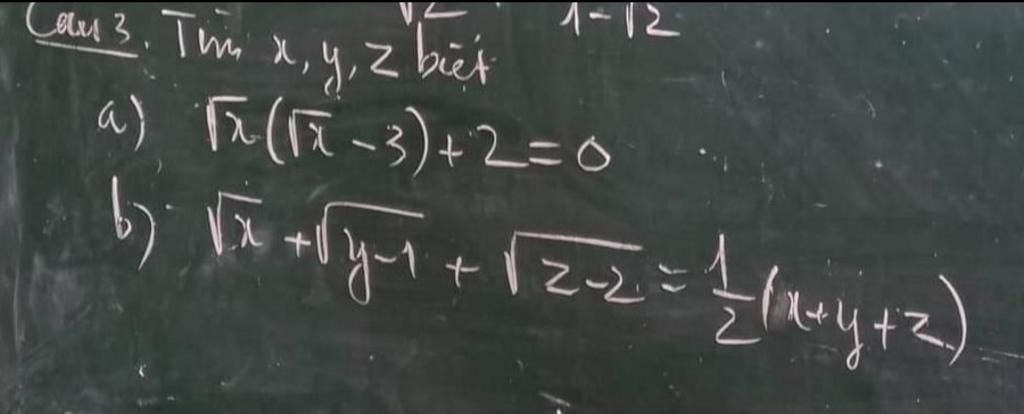 √2 1-√2
Câu 3. Tìm x, y, z biết
a) √x(√x - 3) + 2 = 0
b) √x + √(y-1) + √(z-2) = 1/2 (x+y+z)